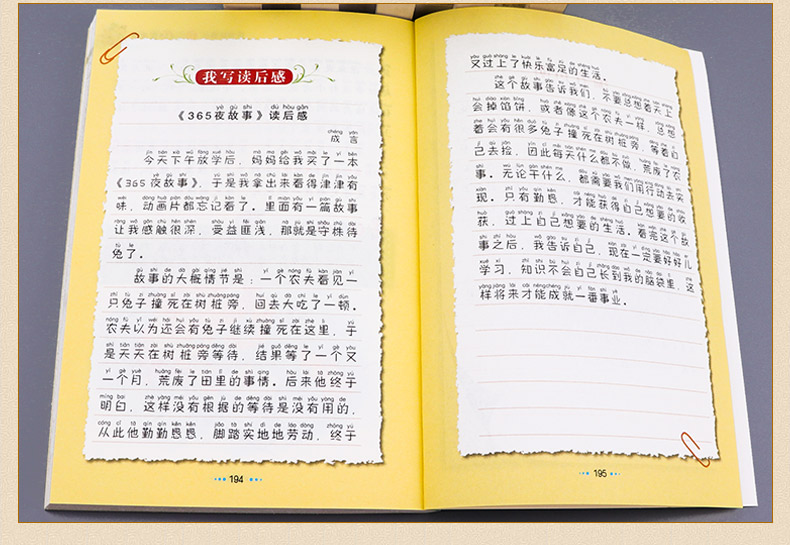 我写读后感
《365夜故事》读后感
成言
今天下午放学后，妈妈给我买了一本
《365夜故事》，于是我拿出来看得津津有
味，动画片都忘记看了。里面有一篇故事
让我感触很深，受益匪浅，那就是守株待
兔了。
故事的大概情节是：一个农夫看见一
只兔子撞死在树桩旁，回去大吃了一顿。
农夫以为还会有兔子继续撞死在这里，于
是天天在树桩旁等待，结果等了一个又
一个月，荒废了田里的事情。后来他终于
明白，这样没有根据的等待是没有用的，
从此他勤勤恳恳，脚踏实地地劳动，终于
194
又过上了快乐富足的生活。
这个故事告诉我们，不要总想着天上
会掉馅饼，或者像这个农夫一样，总想
着会有很多兔子撞死在树桩旁，等着自
己去捡，因此每天什么都不做，荒废了农
事。无论干什么，都需要我们用行动去实
现。只有勤恳，才能获得自己想要的收
获，过上自己想要的生活。看完这个故
事之后，我告诉自己，现在一定要好好儿
学习，知识不会自己长到我的脑袋里，这
样将来才能成就一番事业。
195